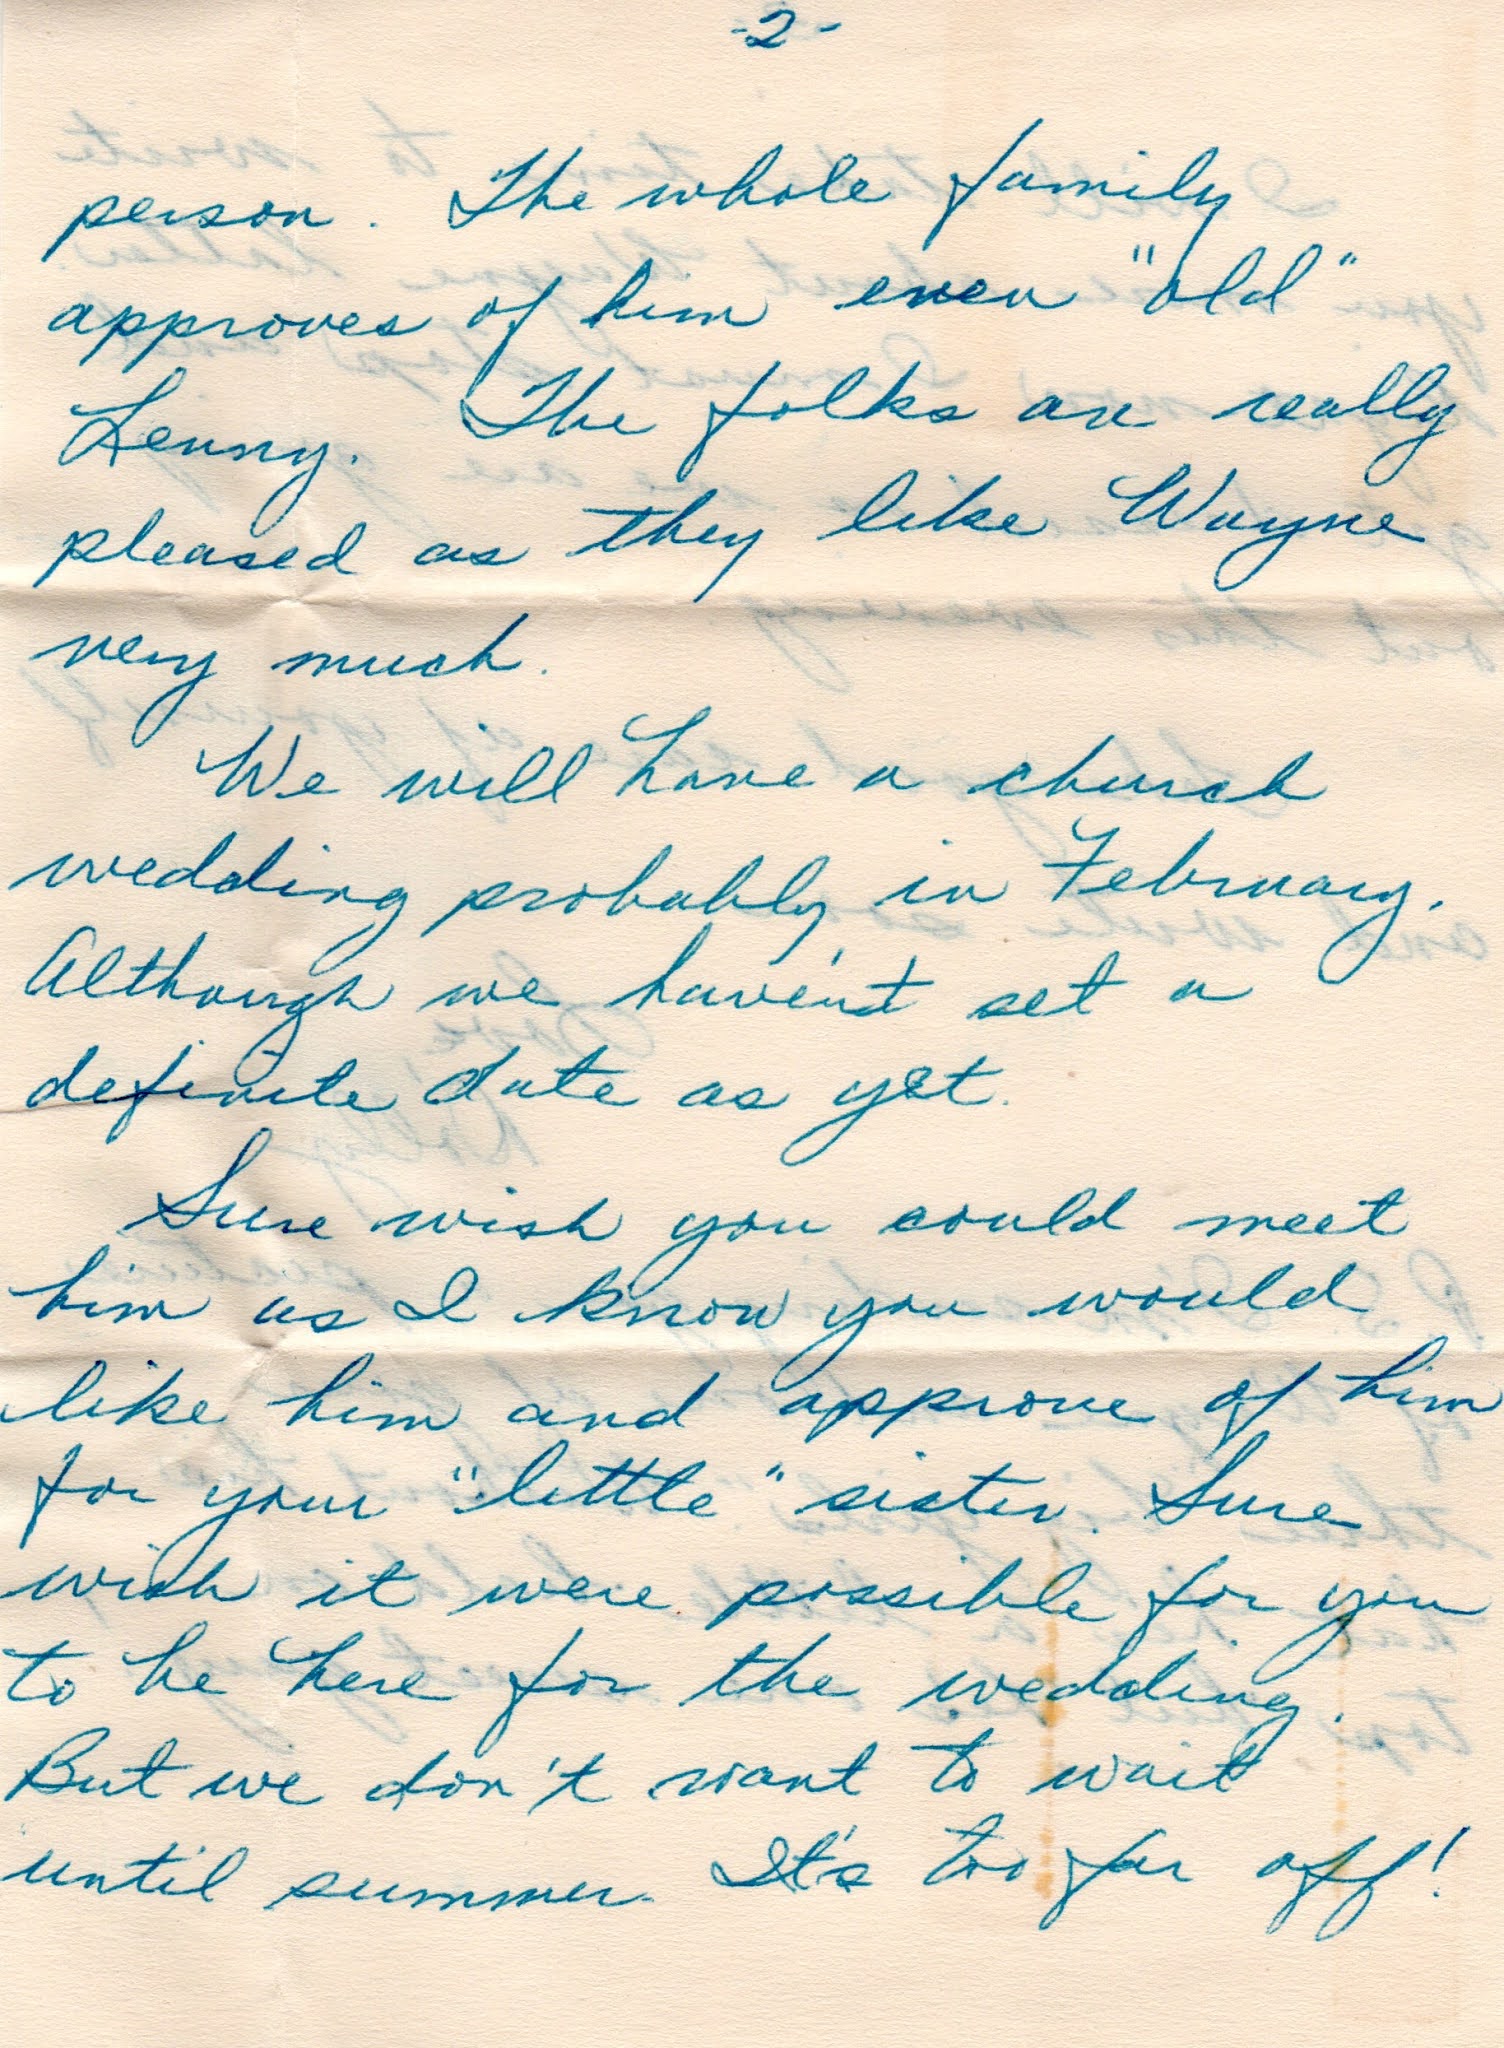 -2-
person. The whole family
approves of him even "old"
Lenny. The folks are really
pleased as they like Wayne
very much.
We will have a church
wedding probably in February.
Although we haven't set a
definite date as yet.
Sure wish you could meet
him as I know you would
like him and approve of him
for your "little" sister. Sure
wish it were possible for you
to be here for the wedding.
But we don't want to wait
until summer. It's too far off!